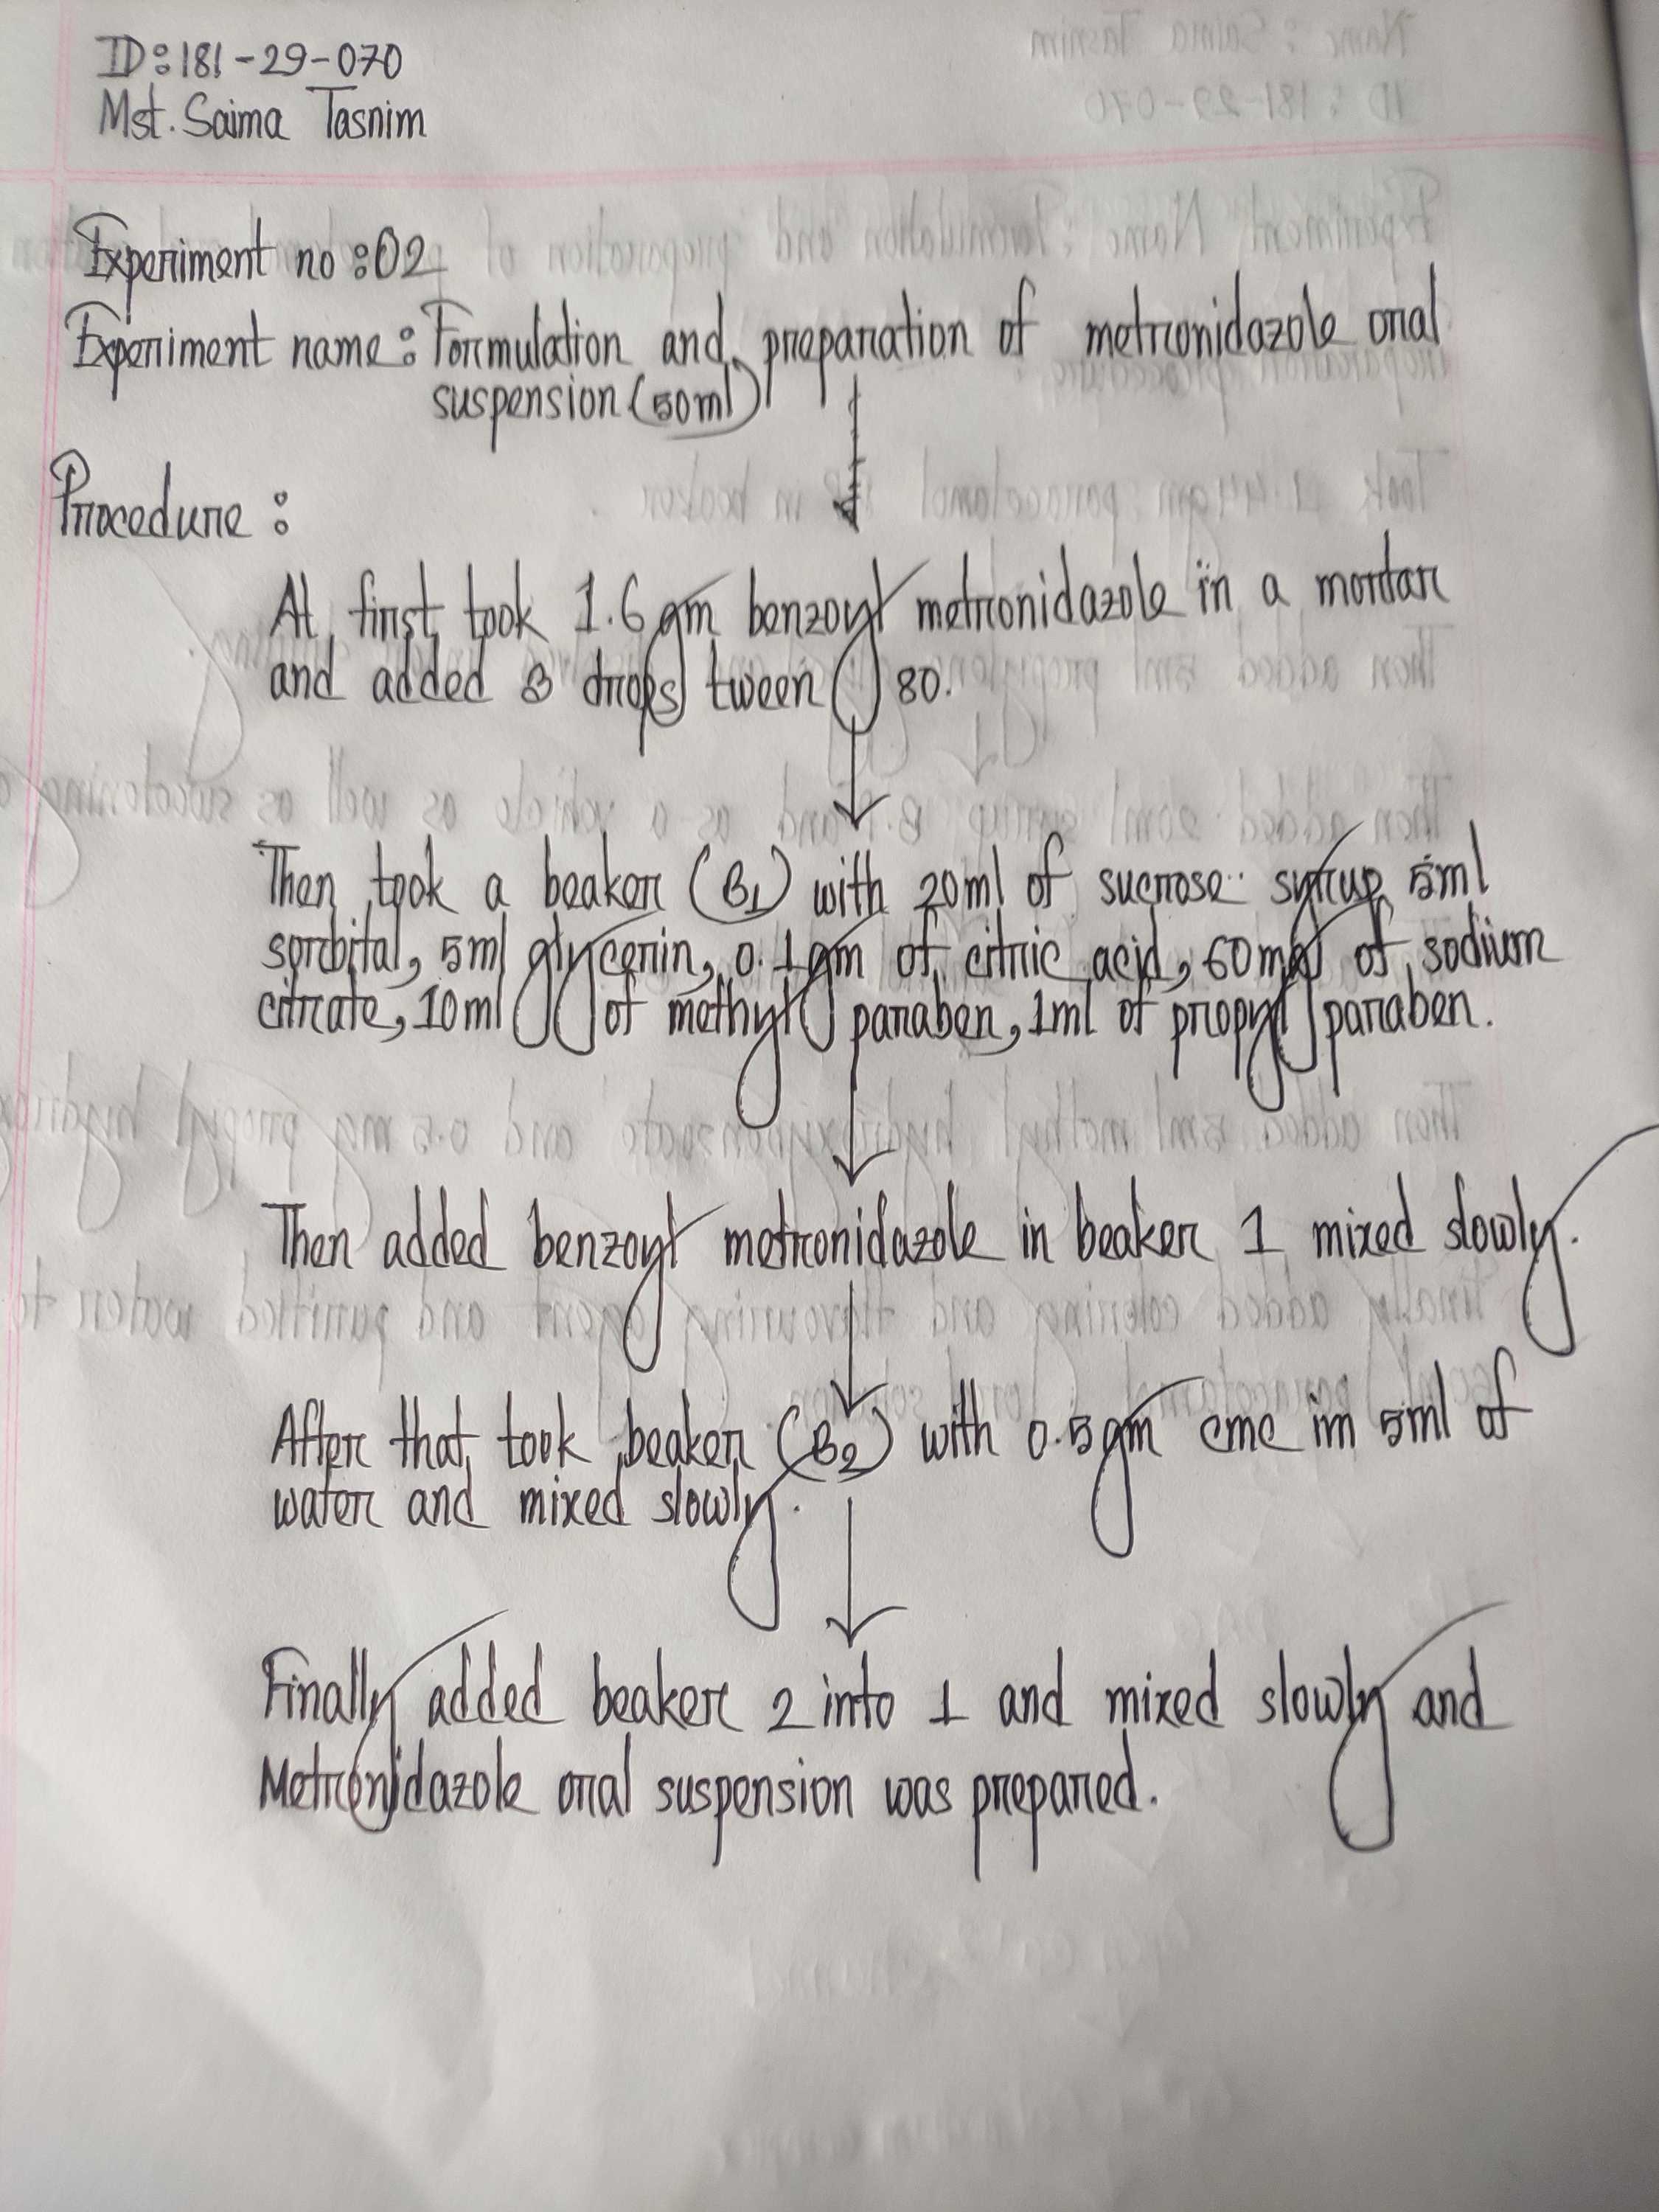 ID:181-29-070
Mst. Saima Tasnim
Experiment no :02
Experiment name: Formulation and preparation of metronidazole oral
suspension (50ml)
Procedure :
At first took 1.6 gm benzoyl metronidazole in a mortar
and added 3 drops tween 80.
Then took a beaker (B1) with 20ml of sucrose syrup 5ml
sorbital, 5ml glycerin, 0.1gm of citric acid, 60mg of sodium
citrate, 10ml of methyl paraben, 1ml of propyl paraben.
Then added benzoyl metronidazole in beaker 1 mixed slowly.
After that took beaker (B2) with 0.5gm cmc im 5ml of
water and mixed slowly.
Finally added beaker 2 into 1 and mixed slowly and
Metronidazole oral suspension was prepared.